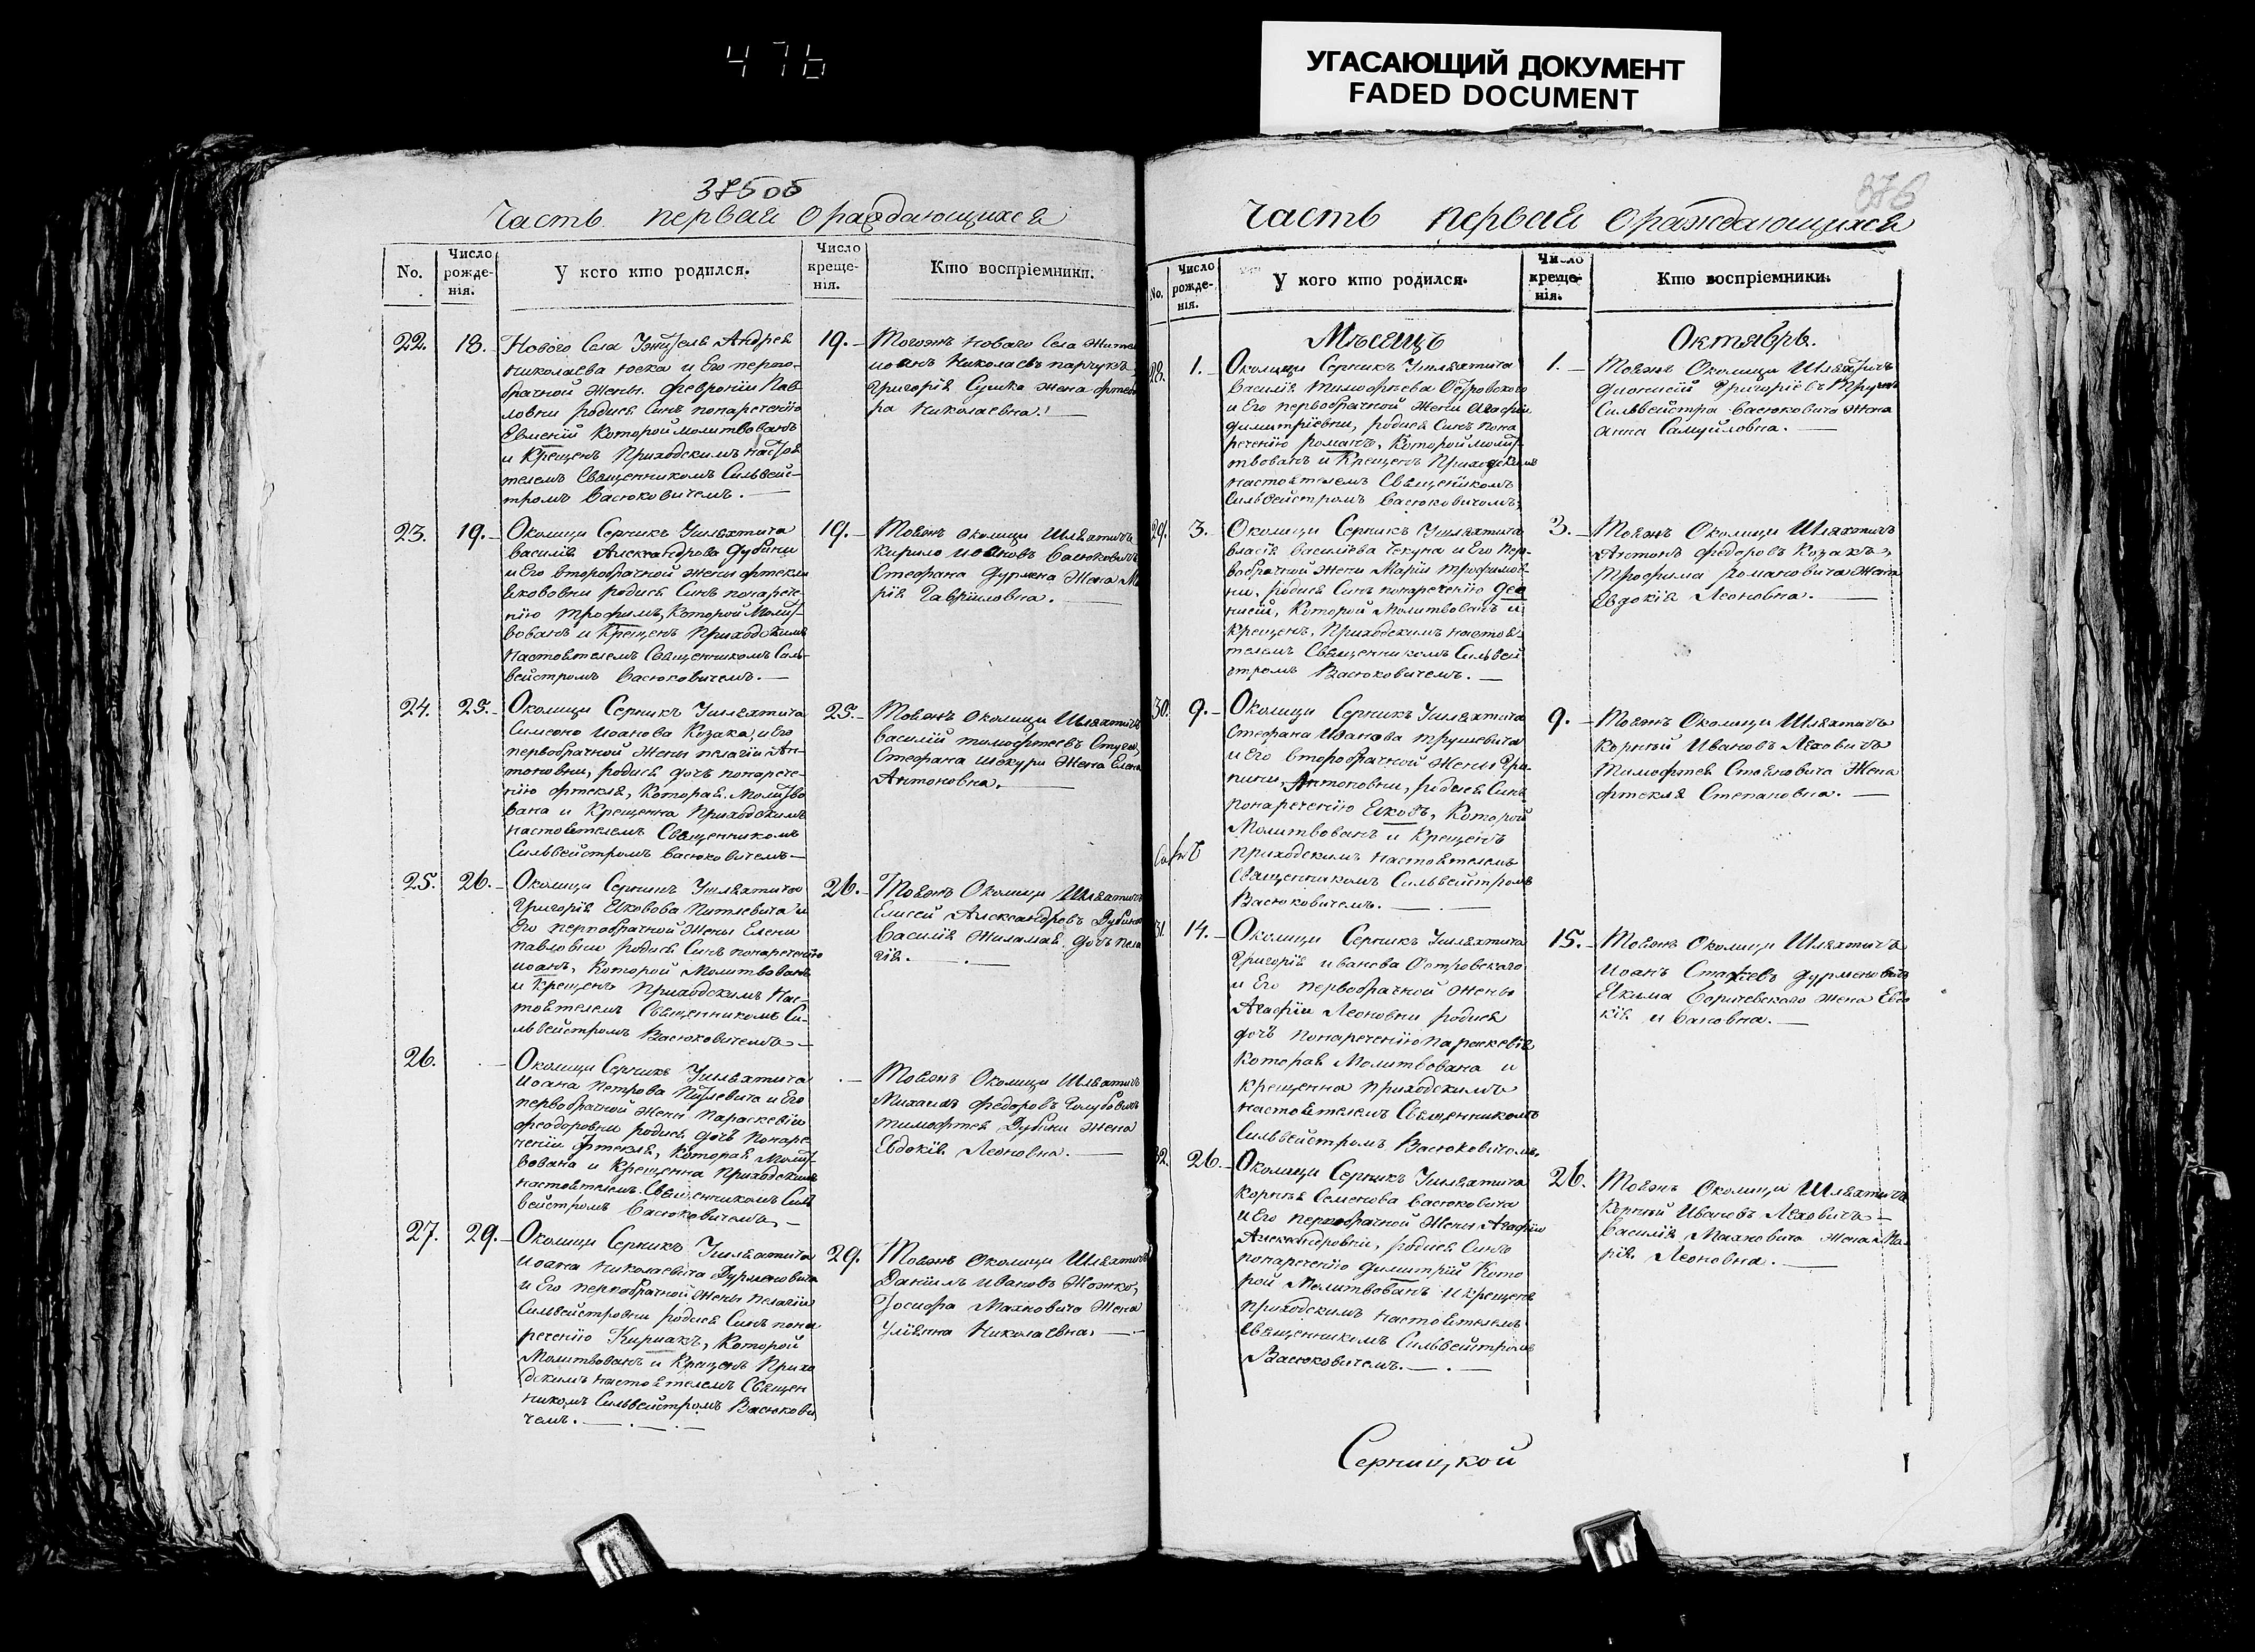 476
УГАСАЮЩИЙ ДОКУМЕНТ
FADED DOCUMENT
375 об
Часть первая о раждающихся
No.
Число рожде-нія.
У кого кто родился.
Число креще-нія.
Кто воспріемники.
22.
18.
Нового Села Жытеля Андрея
Николаева Юска и Его перво-
брачной Жены Февронии Пав
ловны родися Синъ понаречению
Евмений Которой молитвованъ
и Крещенъ Приходскимъ настоя
телемъ Священникомъ Сильвей-
тромъ Васюковичемъ.
19.
Тогожъ Новаго Села Жите
иоанъ Николаевъ парчукъ
Григория Сушка жена Фтек
ра Николаевна.
23.
19.
Околици Серникъ Ушляхтича
Василия Александрова Дубини
и Его второбрачной жены Фтекли
Якововны родися Синъ понарече-
нию Трофимъ, Которой Молит
вованъ и Крещенъ Приходскимъ
Настоятелемъ Священникомъ Силь-
вейстромъ Васюковичемъ.
19.
Тоеяжъ Околици Шляхтичъ
Кирило иоановъ Васюковичъ
Стефана Дурмена Жена Ма
рия Гавриловна.
24.
25.
Околици Серникъ Ушляхтича
Симеона Иоанова Козака, и Его
первобрачной Жены пелагии Ан-
тоновны, родися дочь понарече-
нию Фтекля, Которая Молитво
вана и Крещенна Приходскимъ
настоятелемъ Священникомъ
Сильвейстромъ Васюковичемъ
25.
Тоеяжъ Околици Шляхтичъ
Василий тимофтеевъ
Стефана Шокури Жена Елена
Антоновна.
25.
26.
Околици Серникъ Ушляхтича
Григория Яковова Питлевича и
Его первобрачной Жены Елени
павловны родися Синъ понаречению
иоанъ, Которой Молитвованъ
и Крещенъ Приходскимъ Нас-
тоятелемъ Священникомъ Си-
львейстромъ Васюковичемъ
26.
Тоеяжъ Околици Шляхтичъ
Елисей Александровъ Дубина
Василия Жиламая дочь пела
гия.
26.
Околици Серникъ Ушляхтича
Иоана Петрова Питлевича и Его
первобрачной Жены Параскевии
Феодоровны родися дочь Понаре-
чении Фтекля, Которая Молит
вована и Крещенна Приходскимъ
настоятелемъ Священникомъ Силь
вейстромъ Васюковичемъ
Тоеяжъ Околици Шляхтичъ
Михаилъ Федоровъ Голубовичъ
тимофтея Дубини Жена
Евдокия Леоновна.
27.
29.
Околици Серникъ Ушляхтича
Иоана Николаевича Дурменовича
и Его первобрачной Жены Пелагии
Сильвейстровны родися Синъ пона
речению Кириакъ, Которой
Молитвованъ и Крещенъ Прихо
дскимъ настоятелемъ Священ
никомъ Сильвейстромъ Васюкови
чемъ.
29.
Тоеяжъ Околици Шляхтичъ
Даниилъ Ивановъ Ножко,
Иосифа Махновича Жена
Улияна Николаевна.
376
Часть первая о раждающихся
No.
Число рожде-нія.
У кого кто родился.
Число креще-нія.
Кто воспріемники.
Мъсяцъ Октябрь.
28.
1.
Околици Серникъ Ушляхтича
Василия Тимофтеева Островского
и Его первобрачной Жены Агафии
Димитриевны, родися Синъ пона
речению романъ, Которой молит
твованъ и Крещенъ Приходскимъ
настоятелемъ Священикомъ
Сильвейстромъ Васюковичомъ,
1.
Тоеяжъ Околици Шляхтичъ
Дионисий Григориевъ
Сильвейстра Васюковича Жена
Анна Самуйловна.
29.
3.
Околици Серникъ Ушляхтича
власия Василиева Чекуна и Его пер-
вобрачной Жены Марии трофимов-
ны, родися Синъ понаречению Дио
нисий, Которой Молитвованъ и
Крещенъ, Приходскимъ настоя-
телемъ Священникомъ Сильвей
стромъ Васюковичемъ.
3.
Тоеяжъ Околици Шляхтичъ
Антонъ Федоровъ Козакъ,
трофима романовича Жена
Евдокия Леоновна.
30.
9.
Околици Серникъ Ушляхтича
Стефана Иванова трушевича
и Его второбрачной Жены Гри-
пини Антоновны, родися Синъ
понаречению Яковъ, Которой
Молитвованъ и Крещенъ
приходскимъ настоятелемъ
Священникомъ Сильвейстромъ
Васюковичемъ.
9.
Тоеяжъ Околици Шляхтичъ
Корний Ивановъ Леховичъ
Тимофтея Стояновича Жена
Фтекля Степановна.
31.
14.
Околици Серникъ Ушляхтича
Григория иванова Островского
и Его первобрачной Жены
Агафии Леоновны родися
дочь Понаречению параскевия
Которая Молитвована и
Крещенна приходскимъ
настоятелемъ Священникомъ
Сильвейстромъ Васюковичомъ.
15.
Тоеяжъ Околици Шляхтичъ
Иоанъ Дурменовичъ
Якима Боричевского Жена Евдо
кия Ивановна.
32.
26.
Околици Серникъ Ушляхтича
Корнея Семенова Васюковича
и Его первобрачной Жены Агафии
Александровны, родися Синъ
понаречению Димитрий Кото
рой Молитвованъ и Крещенъ
приходскимъ настоятелемъ
священникомъ Сильвейстромъ
Васюковичемъ.
26.
Тоеяжъ Околици Шляхтичъ
Корний Ивановъ Леховичъ
Василия Махновича Жена Ма-
рия Леоновна.
Серницкой